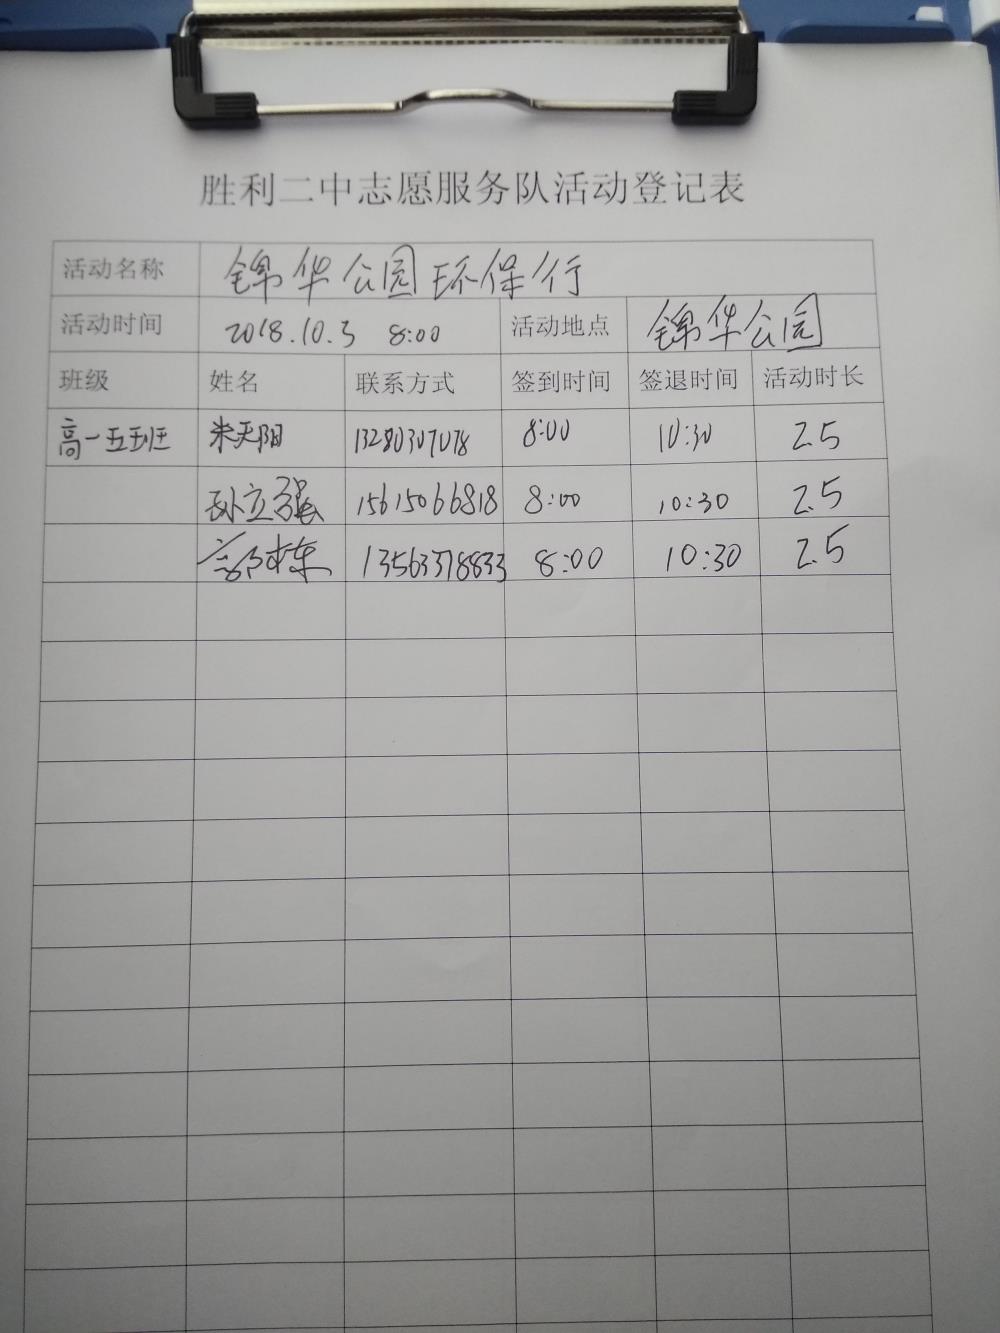 胜利二中志愿服务队活动登记表
活动名称 锦华公园环保行
活动时间 2018.10.3 8:00 活动地点 锦华公园
班级 姓名 联系方式 签到时间 签退时间 活动时长
高一五班 朱天阳 13280307078 8:00 10:30 2.5
孙立强 15615066818 8:00 10:30 2.5
13563378833 8:00 10:30 2.5